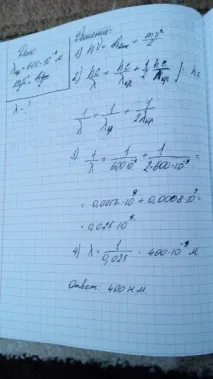 Дано:
λкр = 600·10⁻⁹ м
λ - ?
Решение:
1) hν = Aвых + mv²/2
2) hc/λ = hc/λкр + 1/2 hc/λкр | : hc
1/λ = 1/λкр + 1/2λкр
3) 1/λ = 1/600·10⁻⁹ + 1/2·600·10⁻⁹ =
= 0,0017·10⁹ + 0,0008·10⁹ =
= 0,025·10⁹
4) λ = 1/0,025 · 400·10⁻⁹ м
Ответ: 400 нм.